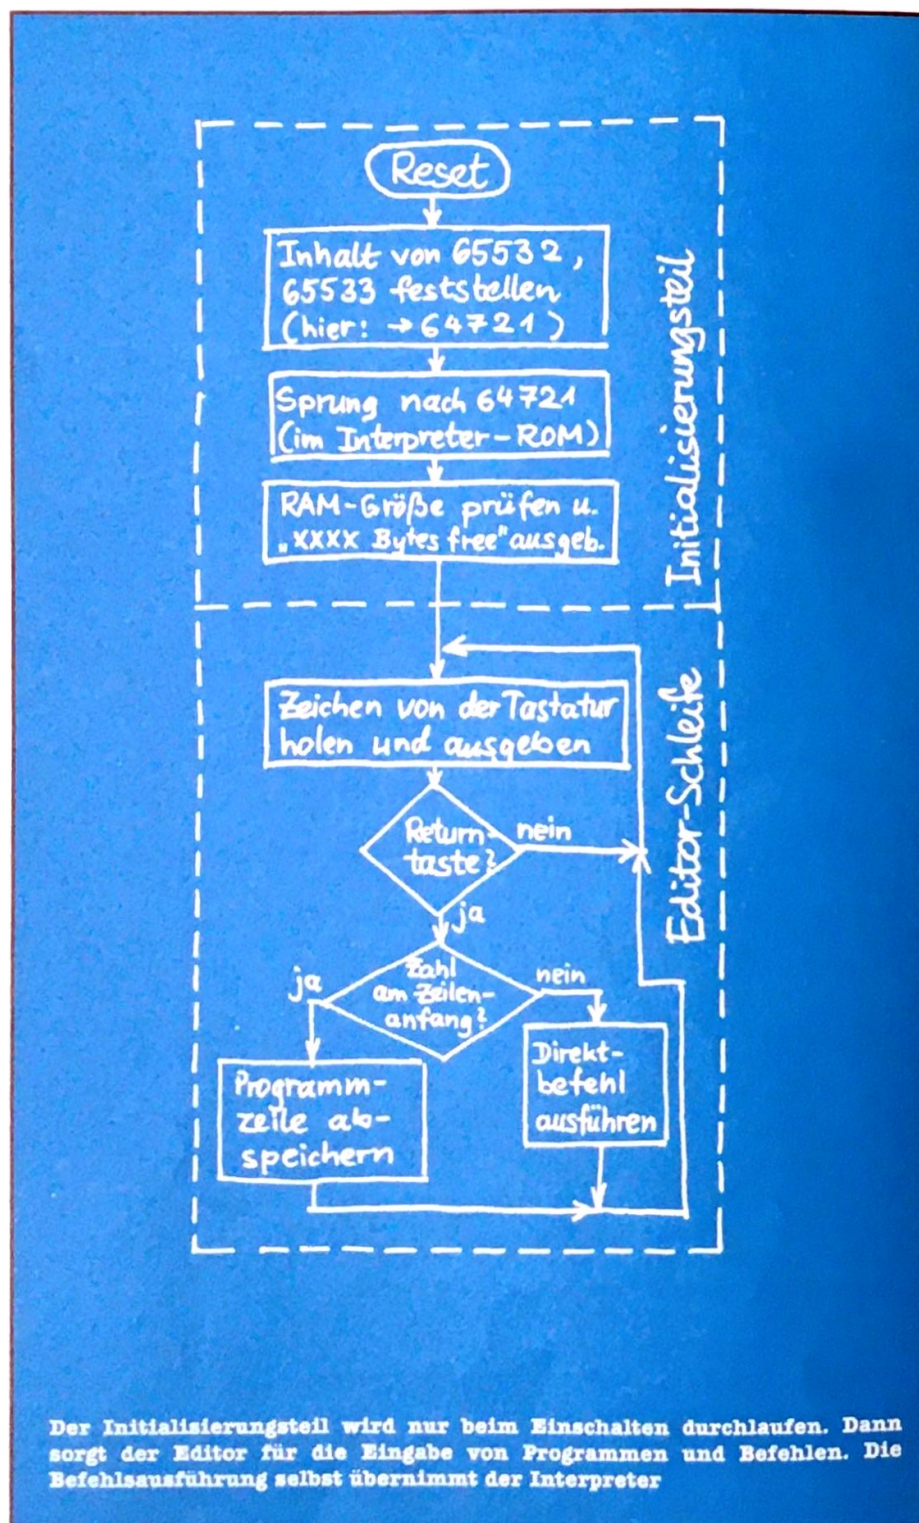 Reset
Inhalt von 65532,
65533 feststellen
(hier: → 64721)
Sprung nach 64721
(im Interpreter-ROM)
RAM-Größe prüfen u.
„XXXX Bytes free" ausgeb.
Initialisierungsteil
Zeichen von der Tastatur
holen und ausgeben
Return-
taste?
nein
ja
Zahl
am Zeilen-
anfang?
ja
nein
Programm-
zeile ab-
speichern
Direkt-
befehl
ausführen
Editor-Schleife
Der Initialisierungsteil wird nur beim Einschalten durchlaufen. Dann
sorgt der Editor für die Eingabe von Programmen und Befehlen. Die
Befehlsausführung selbst übernimmt der Interpreter